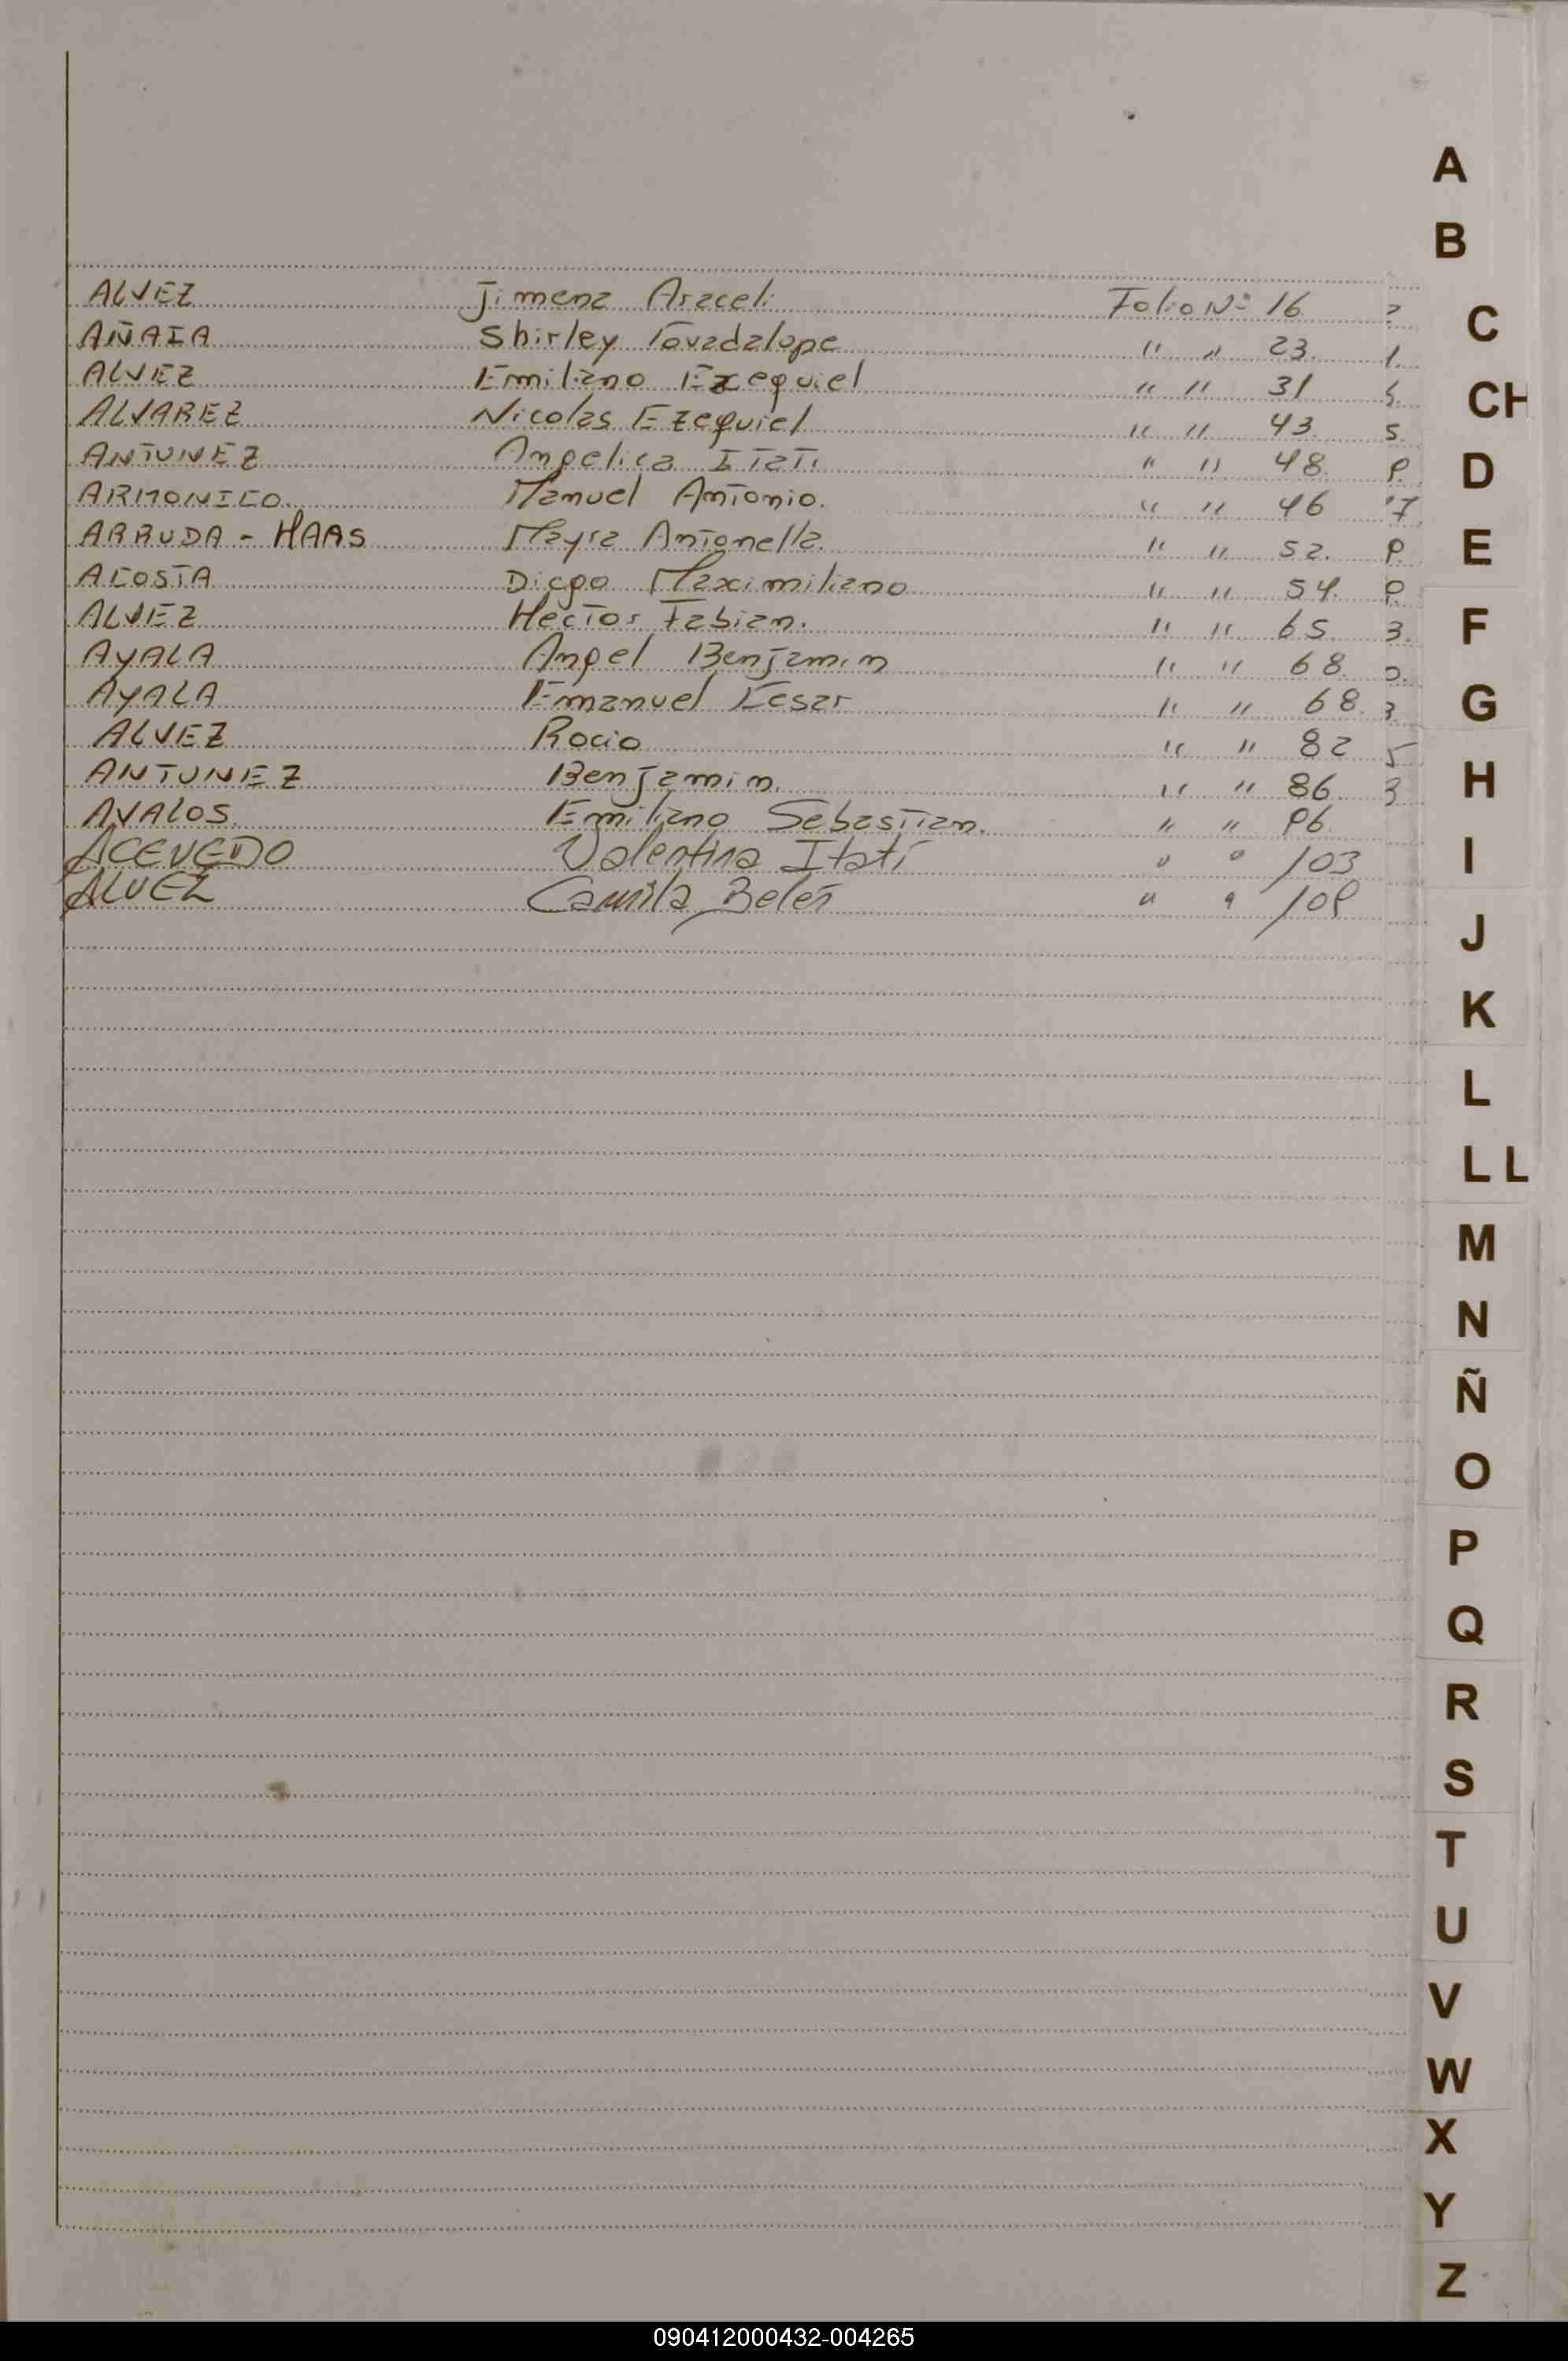 ALVEZ Jimena Araceli Folio Nº 16
AÑAIA Shirley Guadalupe " " 23
ALVEZ Emiliano Exequiel " " 31
ALVAREZ Nicolas Ezequiel " " 43
ANTUNEZ Angelica Itati " " 48
ARMONICO Manuel Antonio. " " 46
ARRUDA - HAAS Mayra Antonella. " " 52.
ACOSTA Diego Maximiliano " " 54.
ALVEZ Hector Fabian. " " 65
AYALA Angel Benjamin " " 68
AYALA Emanuel Cesar " " 68
ALVEZ Rocio " " 82
ANTUNEZ Benjamin. " " 86
AVALOS Emiliano Sebastian. " " 96
ACEVEDO Valentina Itatí " " 103
ALVEZ Camila Belén " " 109
A
B
C
CH
D
E
F
G
H
I
J
K
L
LL
M
N
Ñ
O
P
Q
R
S
T
U
V
W
X
Y
Z
090412000432-004265